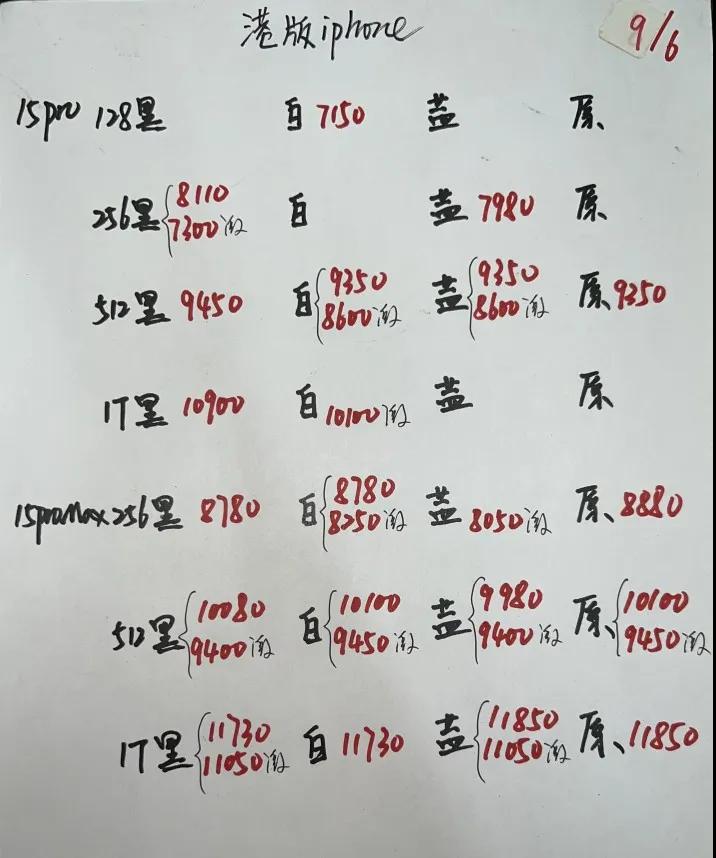 港版iphone 9/6
15pro 128黑 白 7150 蓝 原、
256黑 8110 白 蓝 7980 原、
7300激
512黑 9450 白 9350 蓝 9350 原、9250
8600激 8600激
1T黑 10900 白 10100激 蓝 原、
15proMax 256黑 8780 白 8780 蓝 8050激 原、8880
8250激
512黑 10080 白 10100 蓝 9980 原、10100
9400激 9450激 9400激 9450激
1T黑 11730 白 11730 蓝 11850 原、11850
11050激 11050激